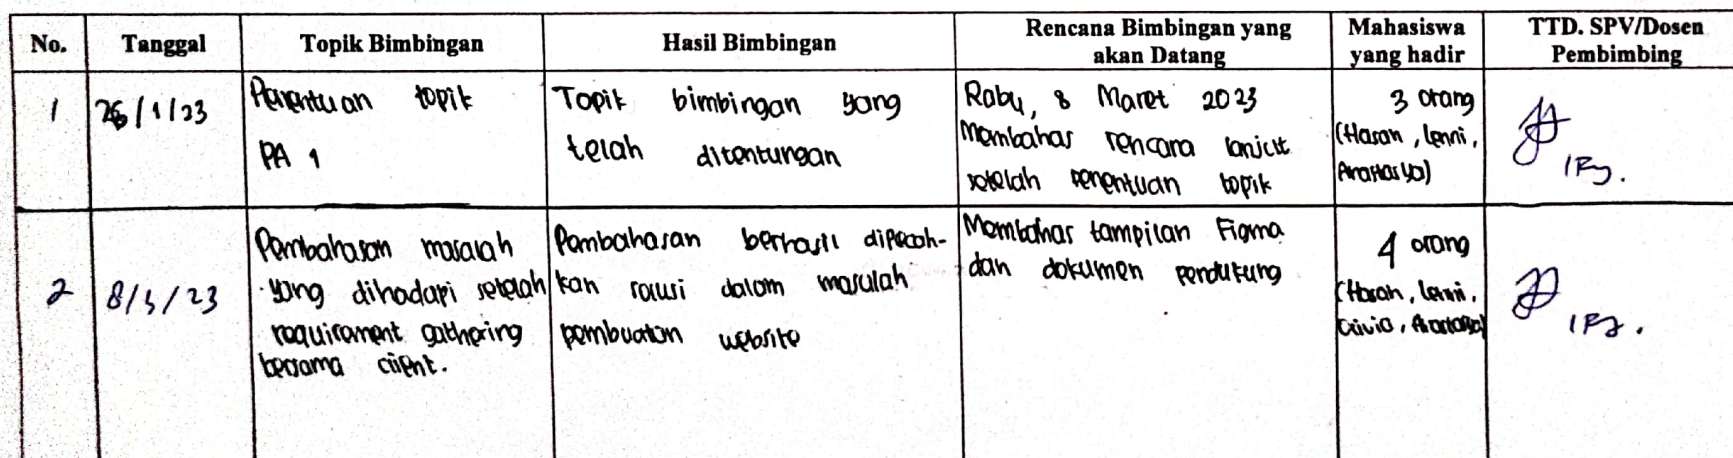 No.
Tanggal
Topik Bimbingan
Hasil Bimbingan
Rencana Bimbingan yang
akan Datang
Mahasiswa
yang hadir
TTD. SPV/Dosen
Pembimbing
1
26/1/23
Penentuan topik
PA 1
Topik bimbingan yang
telah ditentungan
Rabu, 8 Maret 2023
Membahas rencana lanjut
setelah penentuan topik
3 orang
(Hasan, Lenni,
Anastasya)
2
8/3/23
Pembahasan masalah
yang dihadapi setelah
requirement gathering
bersama client.
Pembahasan berhasil dipecah-
kan solusi dalam masalah
pembuatan website
Membahas tampilan Figma
dan dokumen pendukung
4 orang
(Hasan, Lenni,
Olivia, Anastasya)